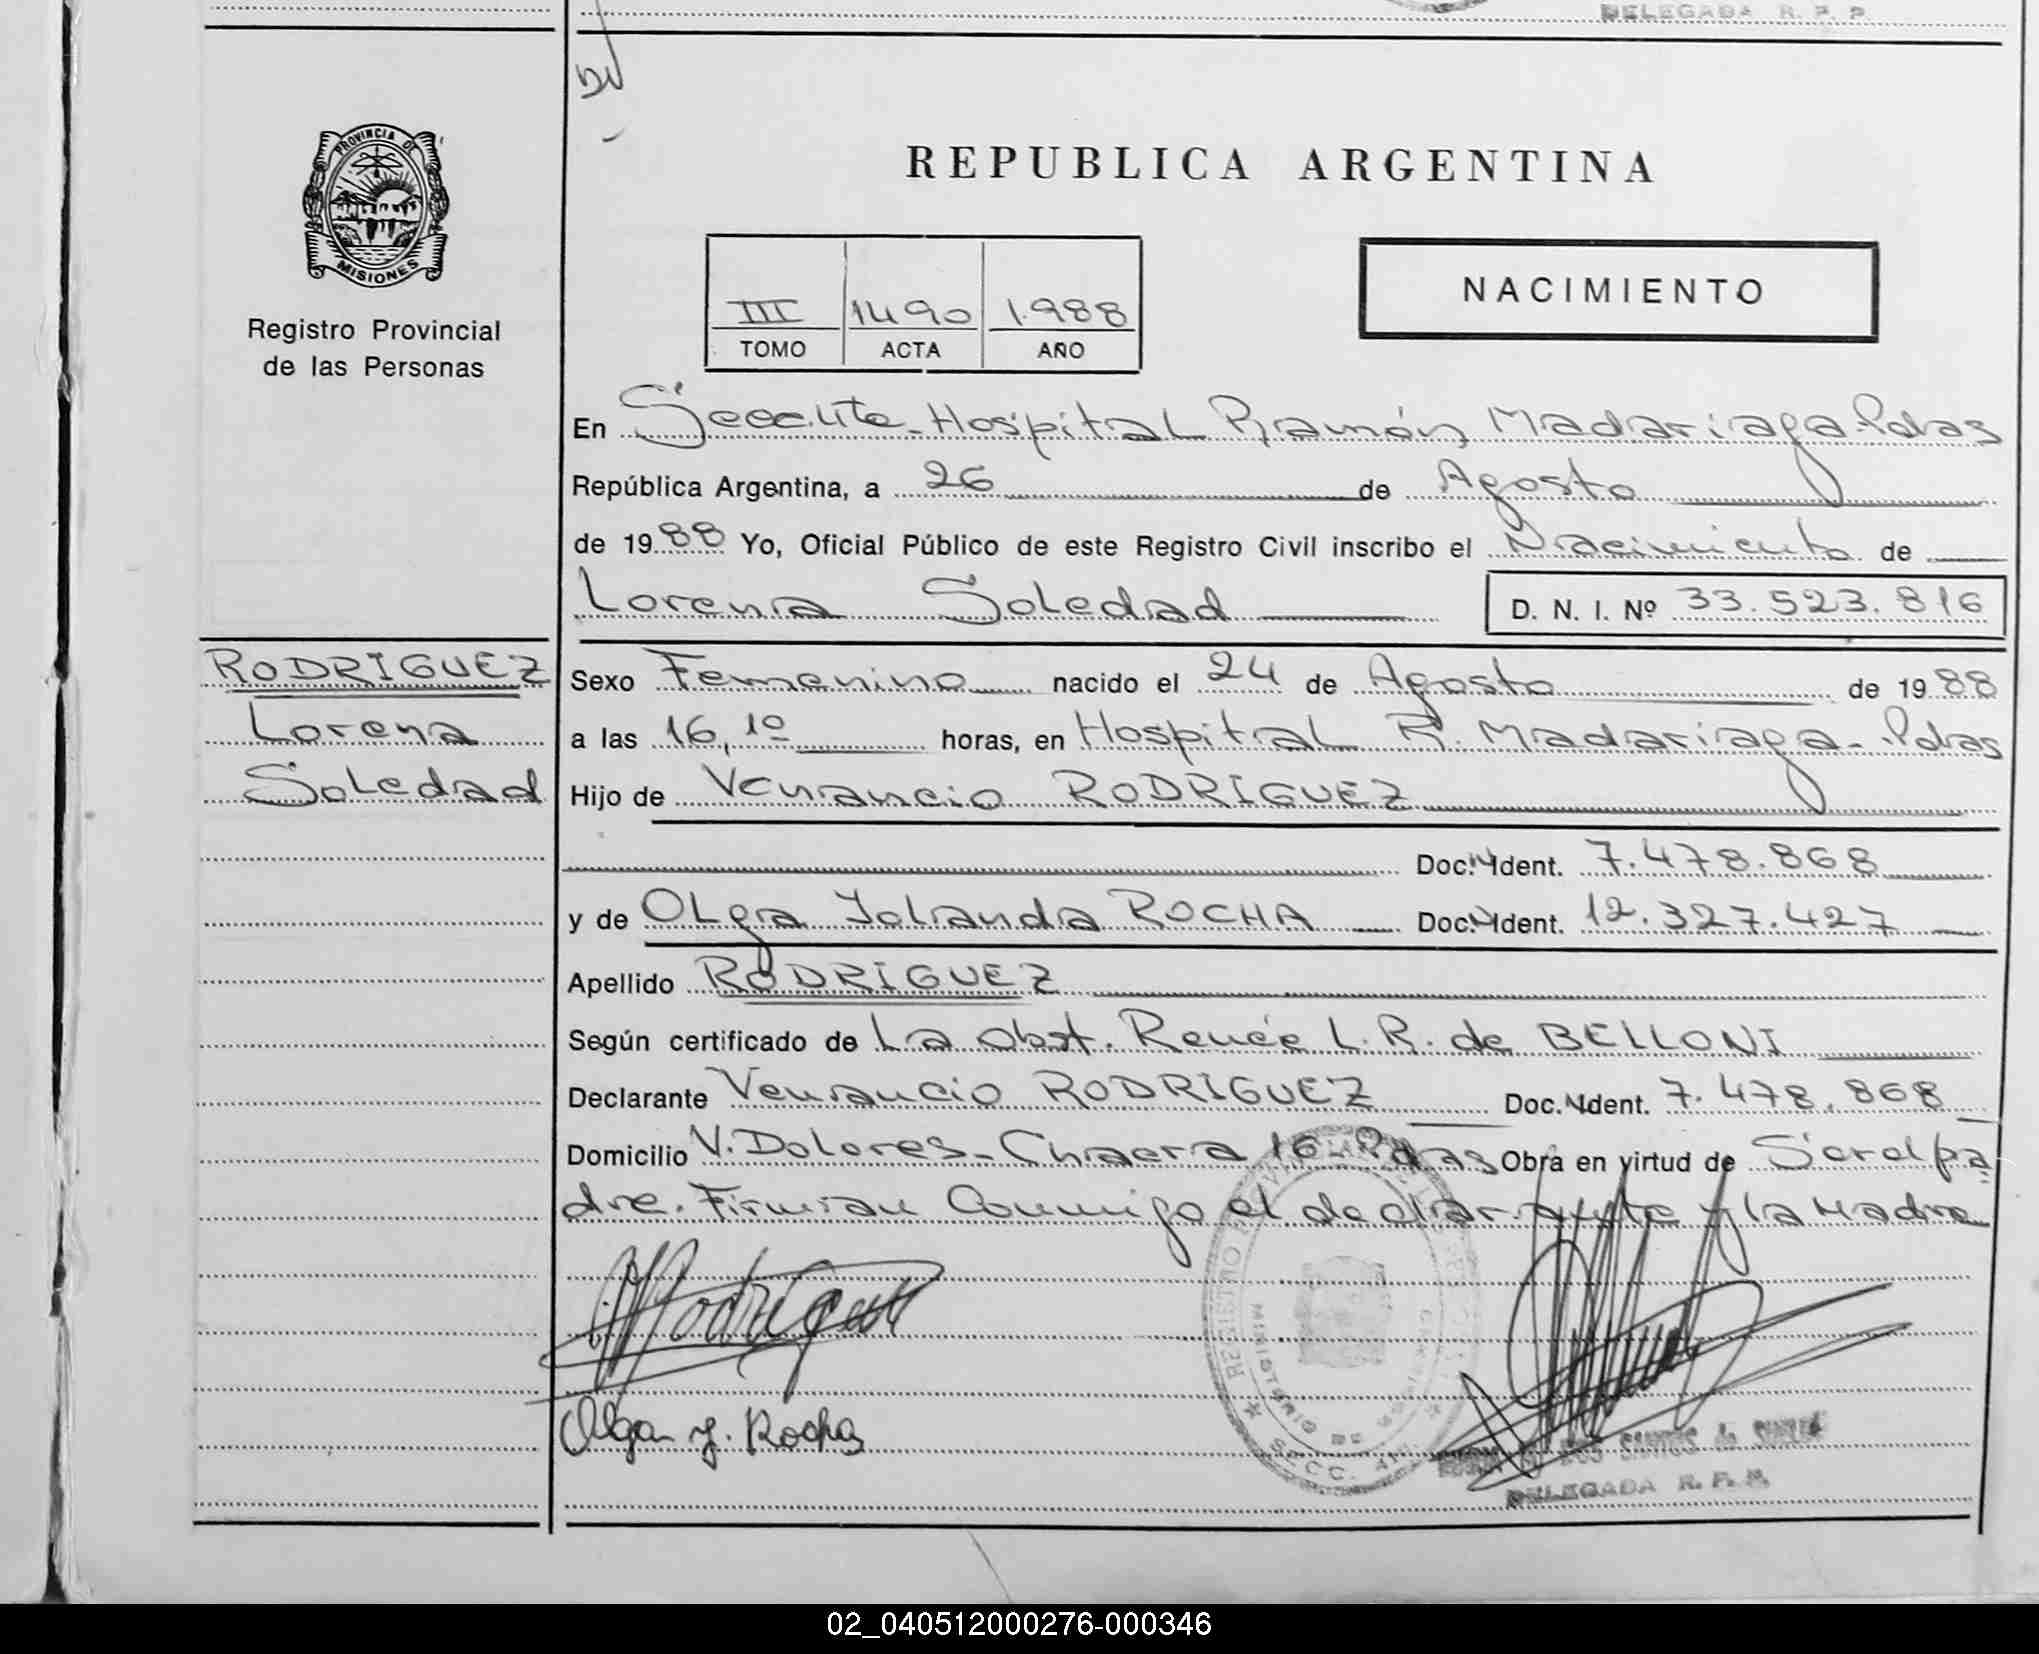 DELEGADA R. P. P.
PROVINCIA DE
MISIONES
Registro Provincial
de las Personas
REPUBLICA ARGENTINA
III 1490 1.988
TOMO ACTA AÑO
NACIMIENTO
En Secc. Hospital Ramón Madariaga-Pdas
República Argentina, a 26 de Agosto
de 1988 Yo, Oficial Público de este Registro Civil inscribo el Nacimiento de
Lorena Soledad D. N. I. Nº 33.523.816
RODRIGUEZ
Lorena
Soledad
Sexo Femenino nacido el 24 de Agosto de 1988
a las 16,10 horas, en Hospital R. Madariaga-Pdas
Hijo de Venancio RODRIGUEZ
Doc. Ident. 7.478.868
y de OLga Yolanda ROCHA Doc. Ident. 12.327.427
Apellido RODRIGUEZ
Según certificado de La Obst. Renée L.R. de BELLONI
Declarante Venancio RODRIGUEZ Doc. Ident. 7.478.868
Domicilio V. Dolores-Chacra 16 Pdas Obra en virtud de Ser el pa
dre. Firman Conmigo el declarante y la Madre
Rodriguez
Olga Y. Rocha
REGISTRO
MINISTERIO DE
SECC.
DOS SANTOS de
DELEGADA R. P. P.
02_040512000276-000346